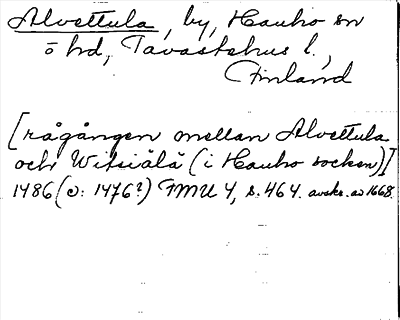 Alvettula, by, Hauho sn
ö hd, Tavastehus l.,
Finland
[rågången mellan Alvettula
och Witsiälä (i Hauho socken)]
1486 (ɔ: 1476?) FMU 4, s. 464. avskr. av 1668.